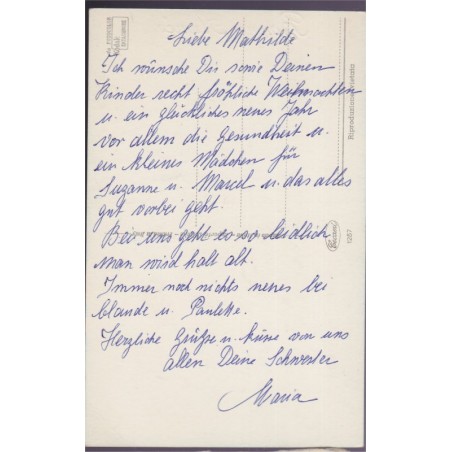 Liebe Mathilde
Ich wünsche Dir sowie Deinen
Kinder recht fröhliche Weihnachten
u. ein glückliches neues Jahr
vor allem die Gesundheit u.
ein kleines Mädchen für
Suzanne u. Marcel u. das alles
gut vorbei geht.
Bei uns geht es so leidlich
man wird halt alt.
Immer noch nichts neues bei
Claude u. Paulette.
Herzliche Grüße u. Küsse von uns
allen Deine Schwester
Maria
Riproduzione vietata
1257